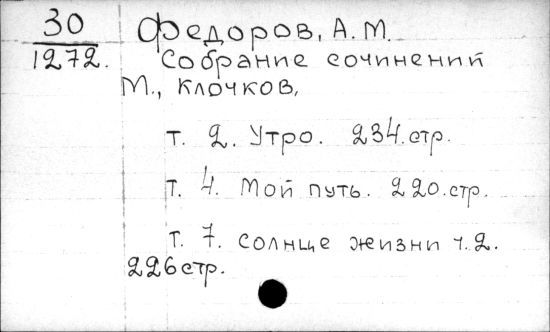 30
1272.
Федоров, А. М.
Собрание сочинений
М., Клочков,
т. 2. Утро. 234.стр.
т. 4. Мой путь. 220.стр.
т. 7. солнце жизни ч. 2.
226стр.